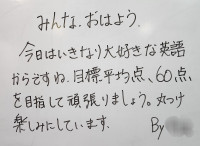 みんな、おはよう。
今日はいきなり大好きな英語
からですね。目標平均点、60点
を目指して頑張りましょう。丸つけ
楽しみにしています。
By